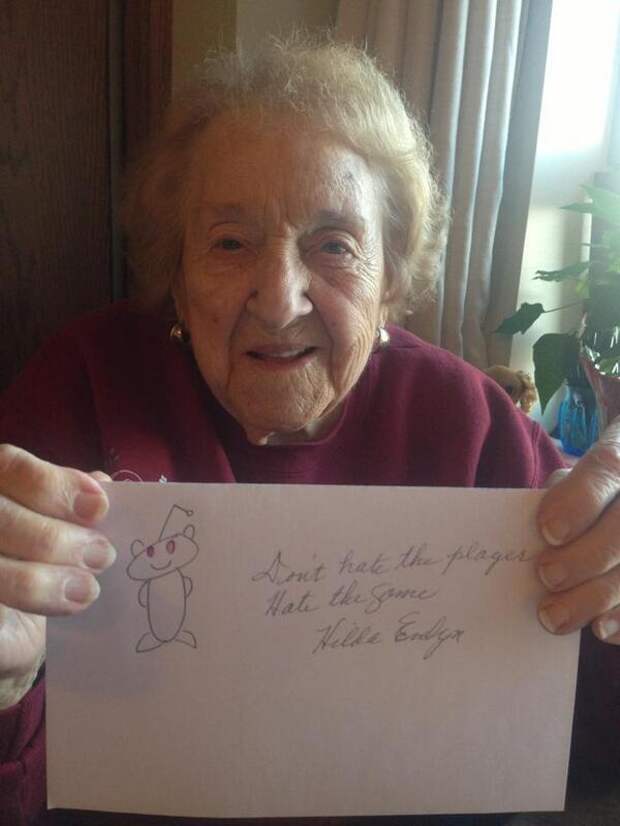 Don't hate the player
Hate the Game
Hilda Evelyn